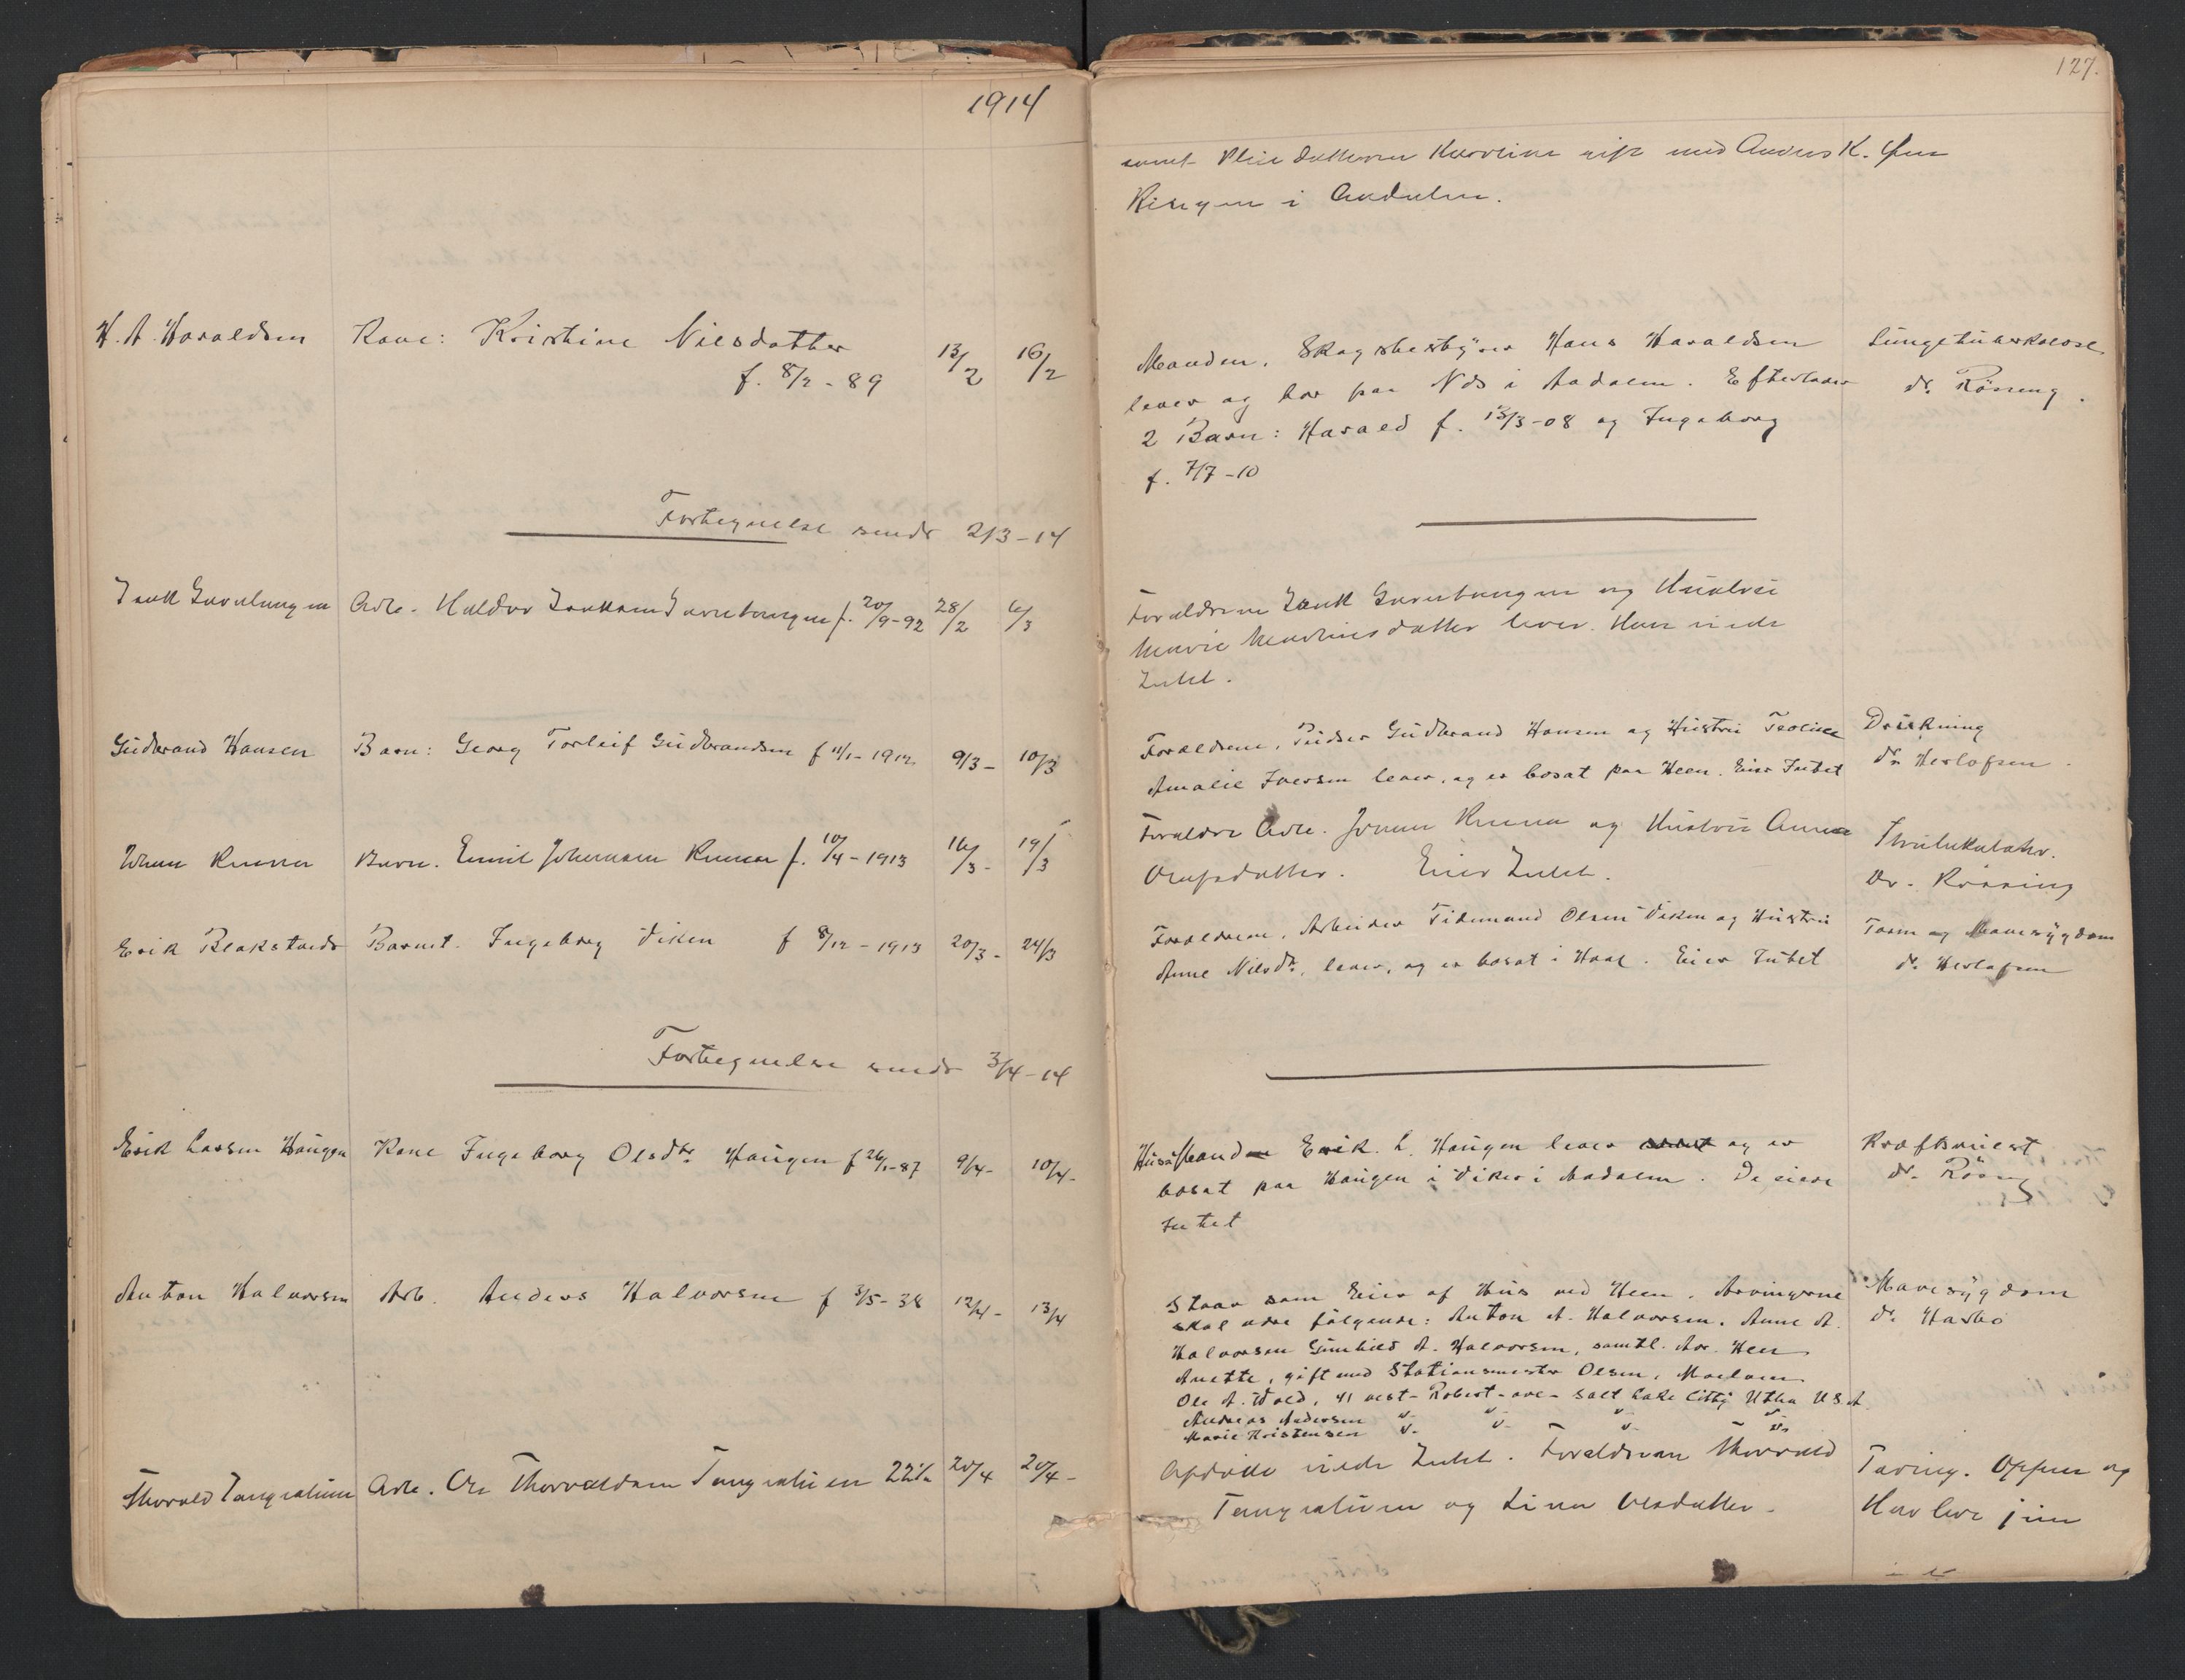 1914
127.
samt Pleiedatteren Karoline gift med Anders K.
Ringen i Aadalen.
H. A. Haraldsen Kone: Kristine Nilsdatter 13/2 16/2
f. 8/2 - 89
Manden, Skogsbestyrer Hans Haraldsen
lever og bor paa Næs i Aadalen. Efterlader
2 Barn: Harald f. 13/3-08 og Ingeborg
f. 7/7-10
Lungetuberkulose
dr. Rössing.
Fortegnelse sendt 2/3-14
Arb. Haldor f. 20/9-92 28/2 6/3
Forældrene og Hustru
Marie Martinsdatter lever. Han eiede
Intet.
Gudbrand Hansen Barn: Georg Torleif Gudbrandsen f 11/1-1912 9/3- 10/3
Forældrene, Pudser Gudbrand Hansen og Hustru Teoline
Amalie Iversen lever, og er bosat paa Heen. Eier Intet
Drukning
dr. Herlofsen.
Johan Runna Barn. Emil Johansen Runna f. 10/4-1913 16/3- 19/3
Forældre Arb. Johan Runna og Hustru Anna
Olafsdatter. Eier Intet.
Strubekatahr.
Dr. Rössing
Erik Blakstveds Barnet. Ingeborg Viken f 8/12-1913 20/3- 24/3
Forældrene, Arbeider Tidemand Olsen Viken og Hustru
Anne Nilsdtr. lever, og er bosat i Hval. Eier Intet
Tarm og Mavesygdom
dr. Herlofsen
Fortegnelse sendt 3/4-14
Erik Larsen Haugen Kone Ingeborg Olsdtr. Haugen f 26/1-87 9/4- 10/4-
Husmand Erik L. Haugen lever og er
bosat paa Haugen i Viker i Aadalen. De eiede
Intet
Kræftsvulst
dr. Rössing
Anton Halvorsen Arb. Anders Halvorsen f 3/5-38 12/4- 13/4
Staar som Eier af Hus ved Heen. Arvingerne
skal være følgende: Anton A. Halvorsen. Anne A.
Halvorsen Gunhild A. Halvorsen, samtl. Adr. Heen
Anette, gift med Stationsmester Olsen, Moelven
Ole A. Wold, 41 vest-Robert-ave- Salt Lake Citty Utha U.S.A
Andreas Andersen v. v- v- v-
Marie Kristensen v.
Mavesygdom
dr. Harbo
Thorvald Tangestuen Arb. Ole Thorvaldsen Tangestuen 22 20/4 24/4-
Afdøde eiede Intet. Forældrene Thorvald
Tangestuen og Lina Olsdatter.
Tæring.